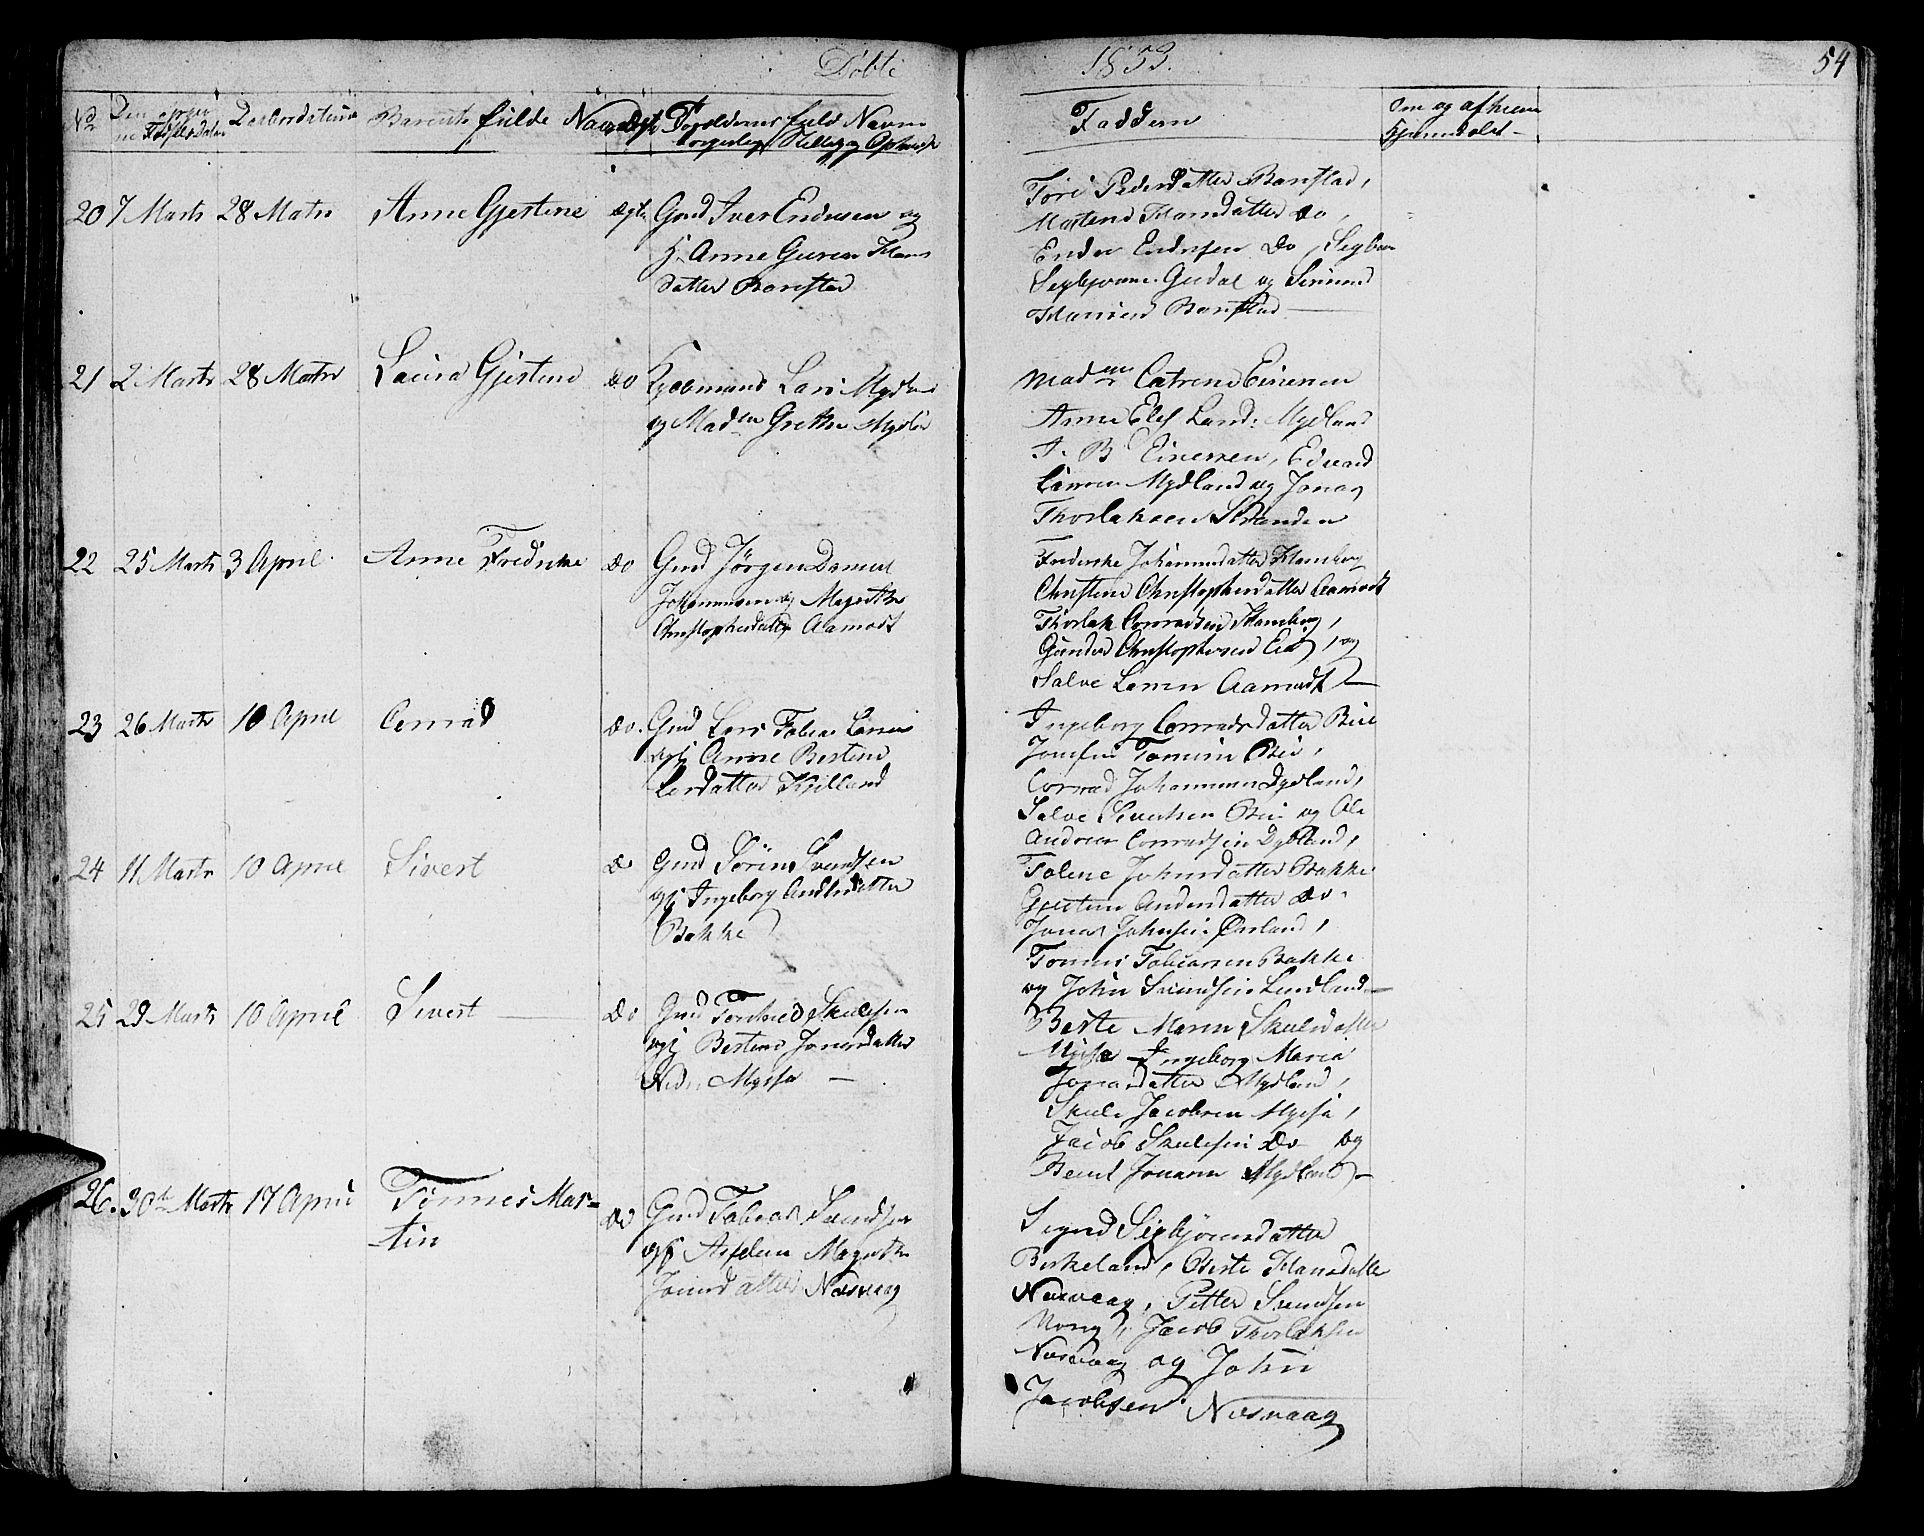 Døbte
1853.
54
No
Barnets fulde Navn
Forældrenes fuld Navn
Faddere
Om og af hvem
20 7 Marts 28 Marts Anne Gjestine Ægte Gmd Iver Endresen og
H. Anne Guren Hans
datter Barstad
Tori Pedersdatter Barstad,
Martene Hansdatter do,
Endre Endresen do, Sigbjørn
Sigbjørnsen Gudal og Simund
Hansen Barstad
21 2 Marts 28 Marts Laura Gjestine do Kjøbmand Lars Mydland
og Madm Grethe Mydland
Madme Catrene Einersen
Anne Elis Land: Mydland
A. B Einersen, Edvard
Larsen Mydland og Jonas
Thorlaksen Stranden
22 25 Marts 3 April Anne Fredrikke do Gmd Jørgen Daniel
Johannesen og Magrethe
Christophersdatter Aamodt
Frederikke Johannesdatter Hamberg
Christine Christophersdatter Aamodt
Thorlak Conradsen Hamberg,
Gunder Christophersen Eia, og
Salve Larsen Aamodt
23 26 Marts 10 April Conrad do Gmd Lars Tobias Larsen
og H Anne Bertine
Larsdatter Kjelland
Ingeborg Conradsdatter Bue
Josefine Tomine Bue,
Conrad Johannesen Dydland,
Salve Sivertsen Bue og Ole
Andreas Conradsen Dydland,
24 11 Marts 10 April Sivert do Gmd Søren Svendsen
og H Ingeborg Andersdatter
Bakke
Tolene Johnsdatter Bakke
Gjestine Andersdatter do
Jonas Johnsen Ørsland,
Tonnes Tobiassen Bakke
og John Svendsen Lindland
25 29 Marts 10 April Sivert do Gmd Torkild Skulesen
og H Bertine Jonasdatter
Nedr. Myssa
Berte Maren Skulesdatter
Myssa Ingeborg Maria
Jonasdatter Mydland,
Skule Jacobsen Myssa,
Jacob Skulesen do og
Berent Jonassen Mydland
26. 30te Marts 17 April Tønnes Mar-
tin
do Gmd Tobias Svendsen
og H Asseline Magrethe
Jonasdatter Næsvaag
Signed Sigbjørnsdatter
Birkeland, Berte Hansdatter
Næsvaag, Petter Svendsen
Mong, Jacob Thorlaksen
Næsvaag og John
Jacobsen Næsvaag